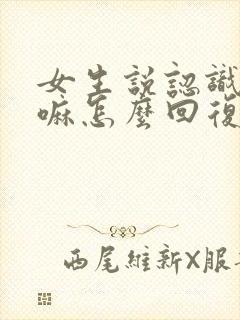 女生説認識
嘛怎麼回復
西尾維新X服